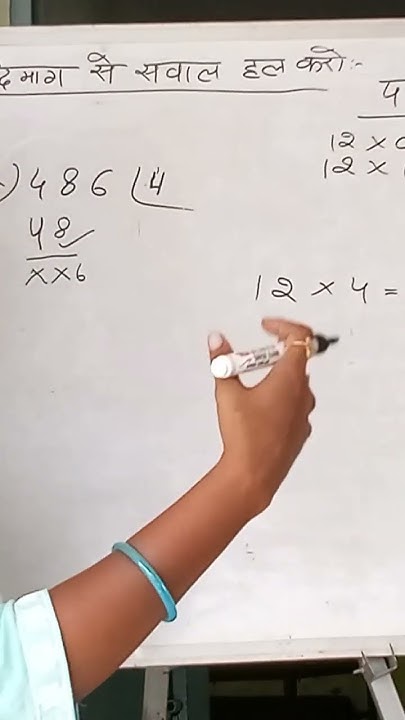 दिमाग से सवाल हल करो :-
12 ×
12 ×
) 486 ( 4
48 ✓
× × 6
12 × 4 =